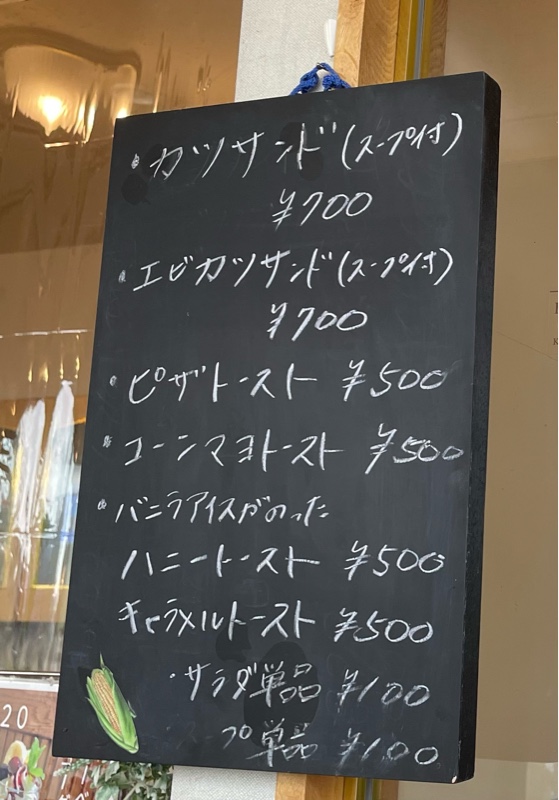 ・カツサンド(スープ付)
¥700
・エビカツサンド(スープ付)
¥700
・ピザトースト ¥500
・コーンマヨトースト ¥500
・バニラアイスがのった
ハニートースト ¥500
キャラメルトースト ¥500
・サラダ単品 ¥100
スープ単品 ¥100
20